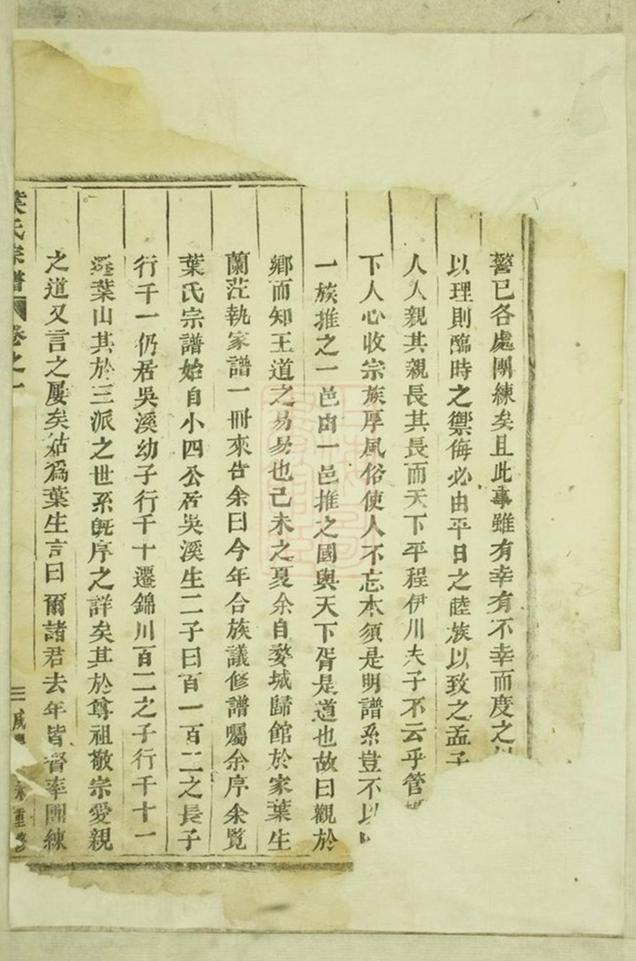 警已各處團練矣且此事雖有幸有不幸而度之
以理則臨時之禦侮必由平日之睦族以致之孟子
人人親其親長其長而天下平程伊川夫子不云乎管
下人心收宗族厚風俗使人不忘本須是明譜系豈不以
一族推之一邑由一邑推之國與天下胥是道也故曰觀於
鄉而知王道之易易也己未之夏余自婺城歸館於家葉生
蘭茫執家譜一冊來告余曰今年合族議修譜囑余序余覽
葉氏宗譜始自小四公居吳溪生二子曰百一百二之長子
行千一仍居吳溪幼子行千十遷錦川百二之子行千十一
遷葉山其於三派之世系旣序之詳矣其於尊祖敬宗愛親
之道又言之屢矣姑爲葉生言曰爾諸君去年皆督率團練
葉氏宗譜 卷之一 三 咸 重修